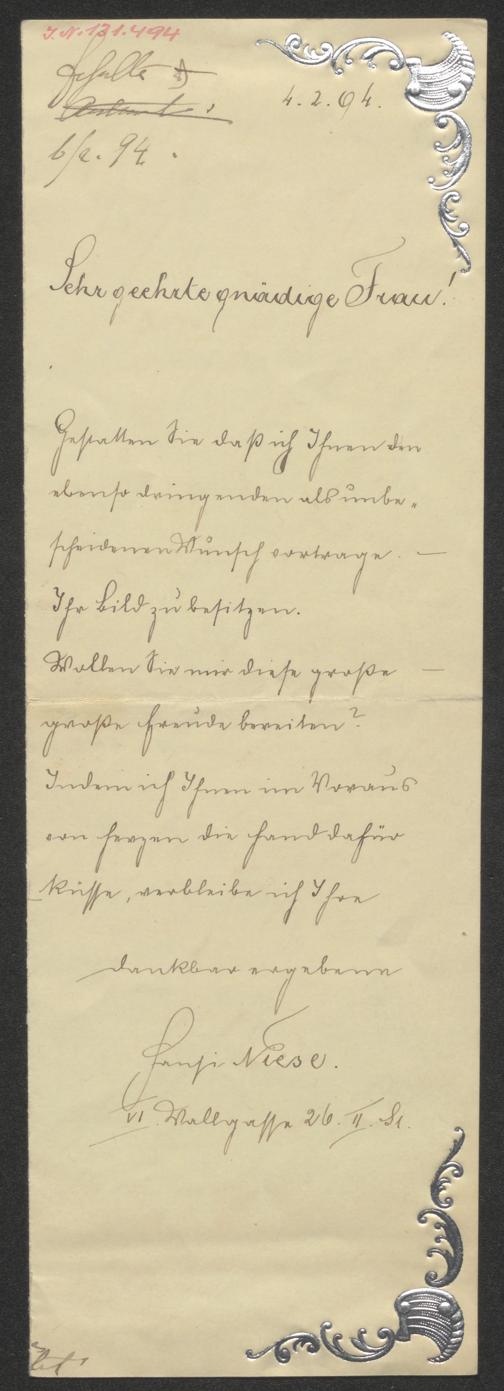 I.N. 131.494
4.2.94.
6/2. 94.
Sehr geehrte gnädige Frau!
Gestatten Sie daß ich Ihnen den
ebenso dringenden als unbe-
scheidenen Wunsch vortrage. —
Ihr Bild zu besitzen.
Wollen Sie mir diese große —
große Freude bereiten?
Indem ich Ihnen im Voraus
von Herzen die Hand dafür
küsse, verbleibe ich Ihre
dankbar ergebene
Hansi Niese.
VI. Wallgasse 26. II. St.